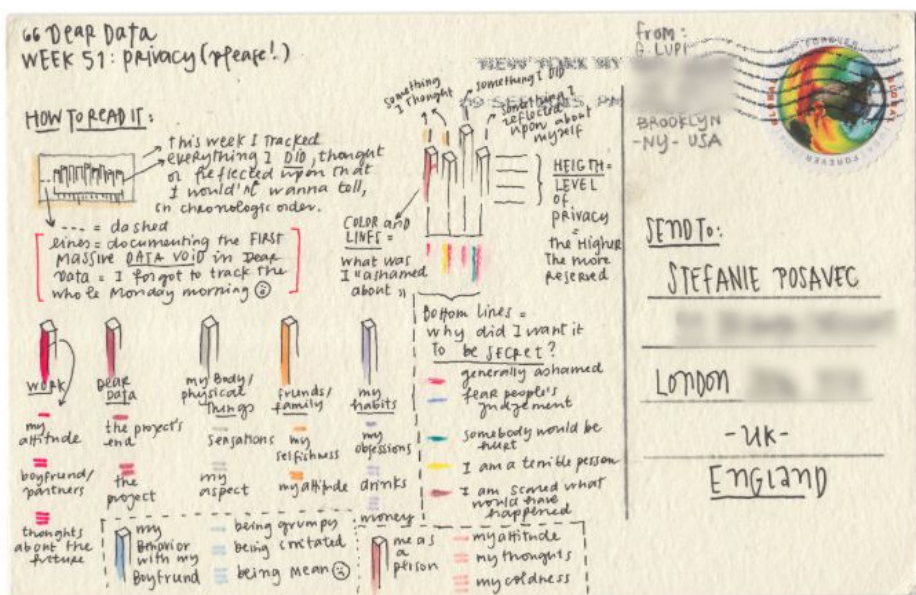 66 Dear Data
WEEK 51: privacy (please!)
HOW TO READ IT:
this week I tracked
everything I DID, thought
or Reflected upon that
I would'n't wanna tell,
in chronologic order.
---- = dashed
lines = documenting the FIRST
MASSIVE DATA VOID in Dear
Data = I forgot to track the
whole Monday morning
something
I thought
something I DID
something I
reflected
upon about
myself
HEIGTH =
LEVEL
of
PRIVACY
=
the Higher
the more
reserved
COLOR and
LINES =
what was
I "ashamed
about"
Bottom lines =
why did I want it
To be SECRET?
generally ashamed
fear people's
judgement
somebody would be
hurt
I am a terrible person
I am scared what
would have
happened
WORK
my
attitude
boyfriend/
partners
thoughts
about the
future
Dear
DATA
the project's
end
the
project
my Body/
physical
Things
sensations
my
aspect
friends/
family
my
selfishness
my attitude
my
habits
my
obsessions
drinks
money
my
Behavior
with my
Boyfriend
being grumpy
being irritated
being mean
me as
a
person
my attitude
my thoughts
my coldness
from:
G. LUPI
BROOKLYN
-NY- USA
NEW YORK NY
FOREVER
SEND TO:
STEFANIE POSAVEC
LONDON
-UK-
ENGLAND